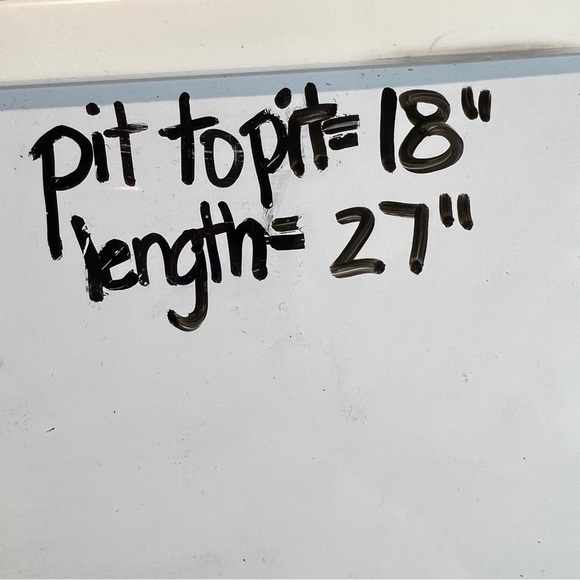 pit to pit= 18"
length= 27"